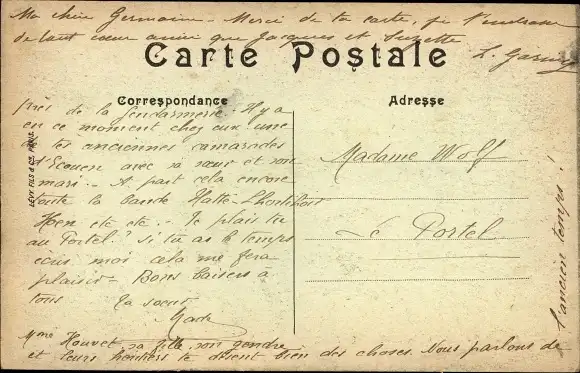 Ma chère Germaine - Merci de ta carte, je t'embrasse
de tout cœur ainsi que Jacques et Suzette
Carte Postale
Correspondance
près de la Gendarmerie. Il y a
en ce moment chez eux une
de tes anciennes camarades
d'Ecouen avec sa sœur et son
mari. - A part cela encore
toute la bande Hatte
Hoen etc etc. - Te plais tu
au Portel. Si tu as le temps
écris moi cela me fera
plaisir - Bons baisers à
tous ta sœur
Mme Houvet sa fille son gendre
et leurs te disent bien des choses. Nous parlons de
l'ancien temps!
LEVY FILS & CIE PARIS
Adresse
Madame Wolf
Le Portel